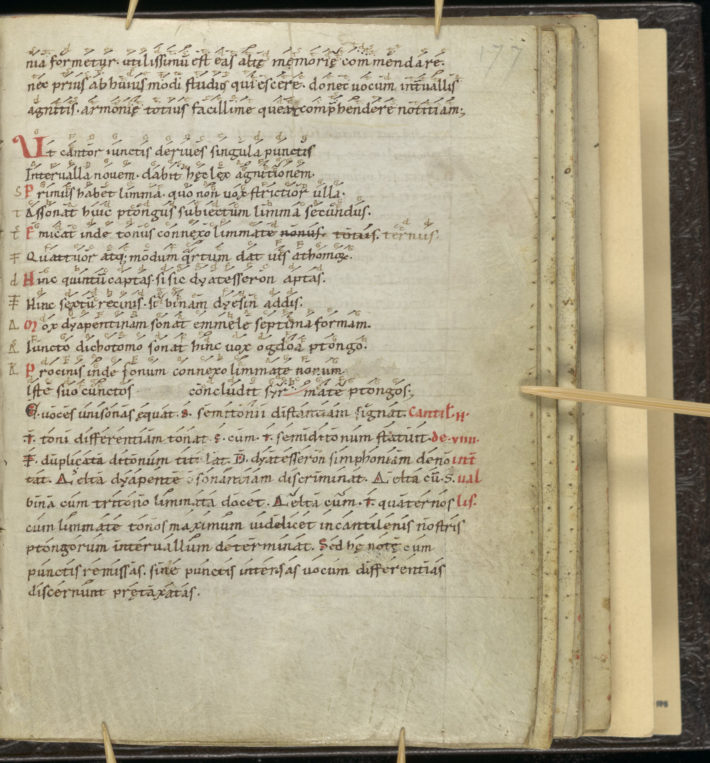 177
nia formetur. utilissimū est eas altę memorię commendare.
nec prius ab huiusmodi studio quiescere. donec vocum intuallis
agnitis. armonię totius facillime queat comphendere notitiam;
Ut cantor iunctis derives singula punctis
Intervalla nouem. dabit hęc lex agnitionem.
S Primus habet limma. quo non vox strictior ulla.
t Assonat huic ptongus subiectum limma secundus.
Emicat inde tonus connexo limmate nonus. totus. ternus.
Quattuor atq; modum qrtum dat uis athomoꝝ.
d Hinc quintū captas. si sic dyatesseron aptas.
Hinc sextū recinis. si binam dyesin addis.
Δ Mox dyapentinam sonat emmele septima formam.
Iuncto dichotomo sonat hinc vox ogdoa ptongo.
Procinis inde sonum connexo limmate nonum
Iste suo cunctos concludit mate ptongos;
E. uoces unisonas equat. s. semitonii distantiam signat. Cantil
T. toni differentiam tonat. s. cum. t. semiditonum statuit. de. VIIII.
T. duplicata ditonum titulat. D. dyatesseron simphoniam deno int
tat. Δ. elta dyapente consonantiam discriminat. Δ. elta cū. S. ual
bina cum tritono limmata docet. Δ. elta cum. t. quaternos lis.
cum limmate tonos maximum uidelicet in cantilenis nostris
ptongorum interuallum determinat. Sed hę notę cum
punctis remissas. sine punctis intensas uocum differentias
discernunt prętaxatas.